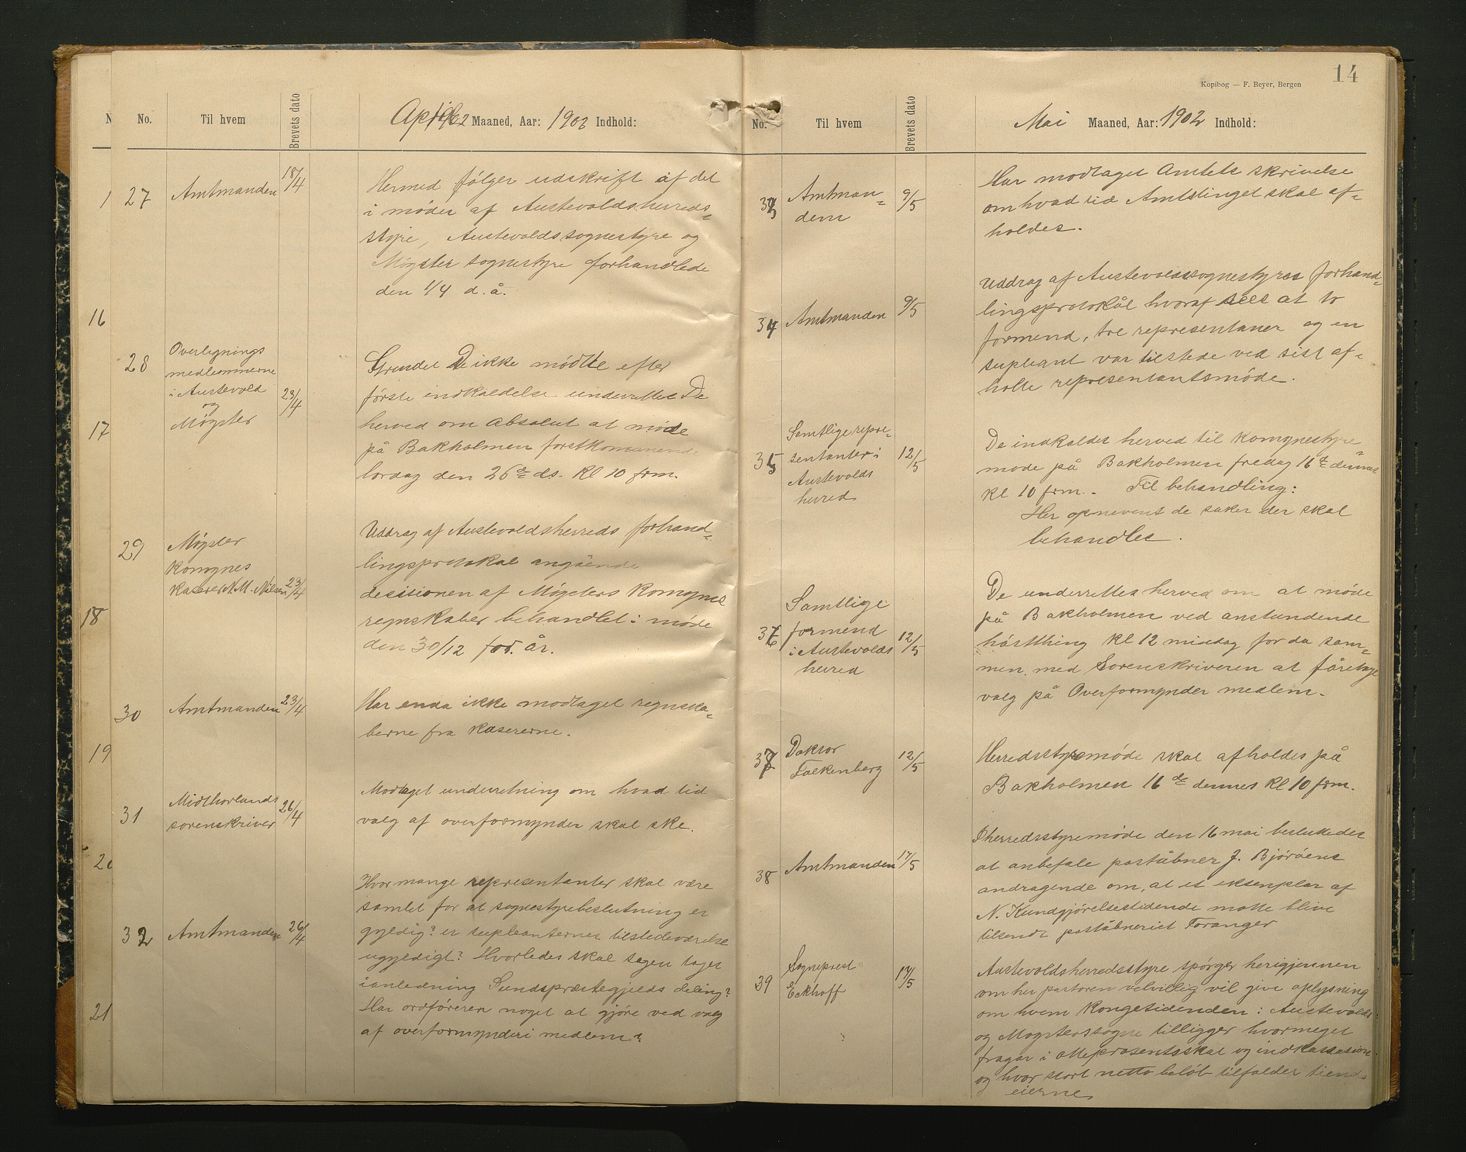 No.
Til hvem
Brevets dato
April 1902 Maaned, Aar: 1902 Indhold:
27
Amtmanden
18/4
Hermed følger udskrift af det
i møder af Austevoldsherreds-
styre, Austevoldssognestyre og
Møgster sognestyre forhandlede
den 4/4 d. å.
28
Overlignings
medlemmerne
i Austevold
og
Møgster
23/4
Grundet De ikke mødtte efter
første indkaldelse underrettes De
herved om absolut at møde
på Bakholmen førstkommend.
lørdag den 26de ds. Kl 10 frm.
29
Møgster
Komognes
Kaserer M. Nilsen
23/4
Uddrag af Austevoldsherreds forhand-
lingsprotokal angående
desisionen af Møgsters Komognes
regnskaber behandlet i møde
den 30/12 for. år.
30
Amtmanden
23/4
Har enda ikke modtaget regnska-
berne fra Kasererne.
31
Midthorlands
sorenskriver
26/4
Modtaget underretning om hvad tid
valg af overformynder skal ske.
32
Amtmanden
26/4
Hvor mange representanter skal være
samlet for at sognestyrebeslutning er
gyldig? er supleanternes tilstedeværelse
ugyldigt? Hvorledes skal sagen tages
i anledning Sundspræstegjelds deling?
Har ordføreren noget at gjøre ved valg
af overformynderi medlem?
16
17
18
19
20
21
14
Kopibog — F. Beyer, Bergen
No.
Til hvem
Brevets dato
Mai Maaned, Aar: 1902 Indhold:
33
Amtman-
dem
9/5
Har modtaget Amtets skrivelse
om hvad tid Amtstinget skal af-
holdes.
34
Amtmanden
9/5
Uddrag af Austevoldssognestyres forhand-
lingsprotokål hvoraf sees at to
formend, tre representaner og en
supleant var tilstede ved sist af-
holte representantsmöde.
35
Samtlige repre-
sentanter i
Austevolds
herred
12/5
De indkaldes herved til Komognestyre
møde på Bakholmen fredag 16de dennes
Kl 10 frm. Til behandling:
Her opnevent de saker der skal
behandles.
36
Samtlige
formend
i Austevolds
herred
12/5
De underrettes herved om at møde
på Bakholmen ved anstundende
hästthing Kl 12 middag for da sam-
men med Sorenskriveren at företage
valg på Overformynder medlem.
37
Doktor
Falkenberg
12/5
Herredsstyremöde skal afholdes på
Bakholmen 16de dennes Kl 10 frm.
38
Amtmanden
17/5
I herredsstyremöde den 16 mai besluttedes
at anbefale postäbner J. Björöens
andragende om, at et eksemplar af
N. Kundgjörelsestidende motte blive
tilsendt postäbneriet Foranger
39
Sogneprest
Eckhoff
17/5
Austevoldsherredsstyre spörger herigjennem
om hr. pastoren velvillig vil give oplysning
om hvem Kongetidenden i Austevolds
og Mögsterssogne tilligger hvormeget
fragår i oppebørselsskat og indkassasion
og hvor stort netto beløb tilfalder tiend
eierne